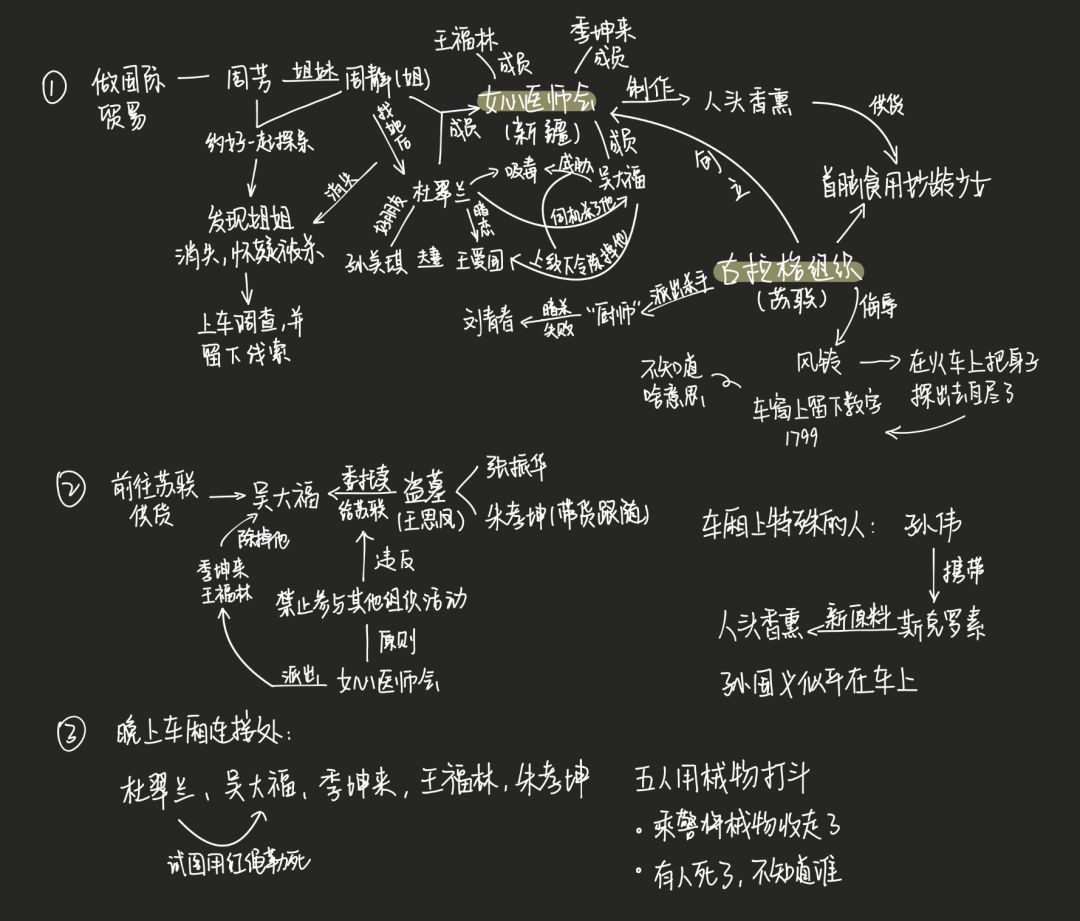 王福林
季坤来
成员
成员
① 做国际
贸易
周芳
姐妹
周静(姐)
找她后
女巫医师会
(新疆)
成员
成员
制作
人头香熏
供货
首脑食用妙龄少女
约好一起探亲
消失
发现姐姐
消失,怀疑被杀
上车调查,并
留下线索
杜翠兰
吸毒
威胁
吴大福
伺机杀了他
创立
好朋友
暗恋
孙美琪
夫妻
王爱国
上级下令除掉他
古拉格组织
(苏联)
派出杀手
“厨师”
暗杀
失败
刘青春
侮辱
风铃
在火车上把身子
探出去自尽了
车窗上留下数字
1799
不知道
啥意思
② 前往苏联
供货
吴大福
委托卖
给苏联
盗墓
(王思凤)
张振华
朱孝坤(带货跟随)
除掉他
季坤来
王福林
违反
禁止参与其他组织活动
原则
派出
女巫医师会
车厢上特殊的人:孙伟
携带
人头香熏
新原料
斯克罗素
孙国义似乎在车上
③ 晚上车厢连接处:
杜翠兰、吴大福、季坤来,王福林,朱孝坤
试图用红绳勒死
五人用械物打斗
·乘警将械物收走了
·有人死了,不知道谁